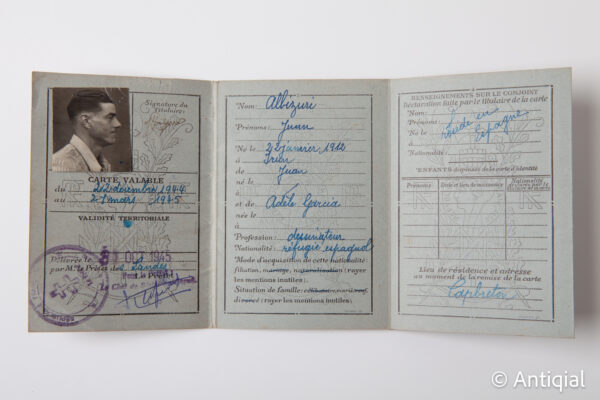 Signature du
Titulaire:
CARTE, VALABLE
du 22 décembre 1944
au 21 mars 1945
VALIDITÉ TERRITORIALE
Délivrée le OCT 1945
par M. le Préfet des Landes
Le Chef de
Nom: Albizuri
Prénoms: Juan
Né le 22 janvier 1912
à Irun
de Juan
né le
à
et de Adèle Garcia
née le
à
Profession: dessinateur
Nationalité: réfugié espagnol
Mode d'acquisition de cette nationalité:
filiation, mariage, naturalisation (rayer
les mentions inutiles).
Situation de famille: célibataire, marié, veuf,
divorcé (rayer les mentions inutiles).
RENSEIGNEMENTS SUR LE CONJOINT
Déclaration faite par le titulaire de la carte
Nom:
Prénoms:
Né le
à
Nationalité:
réside en
Espagne
ENFANTS dispensés de la carte d'identité
Prénoms Date et lieu de naissance Nationalité
Lieu de résidence et adresse
au moment de la remise de la carte
Capbreton
© Antiqial